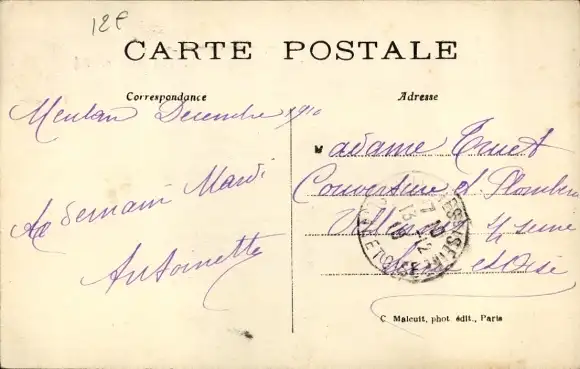 12F
CARTE POSTALE
Correspondance
Adresse
Meulan Décembre 1910
A demain Mardi
Antoinette
Madame Truet
Couverture et Plomberie
s/ seine
Seine et Oise
C. Malcuit, phot. édit., Paris